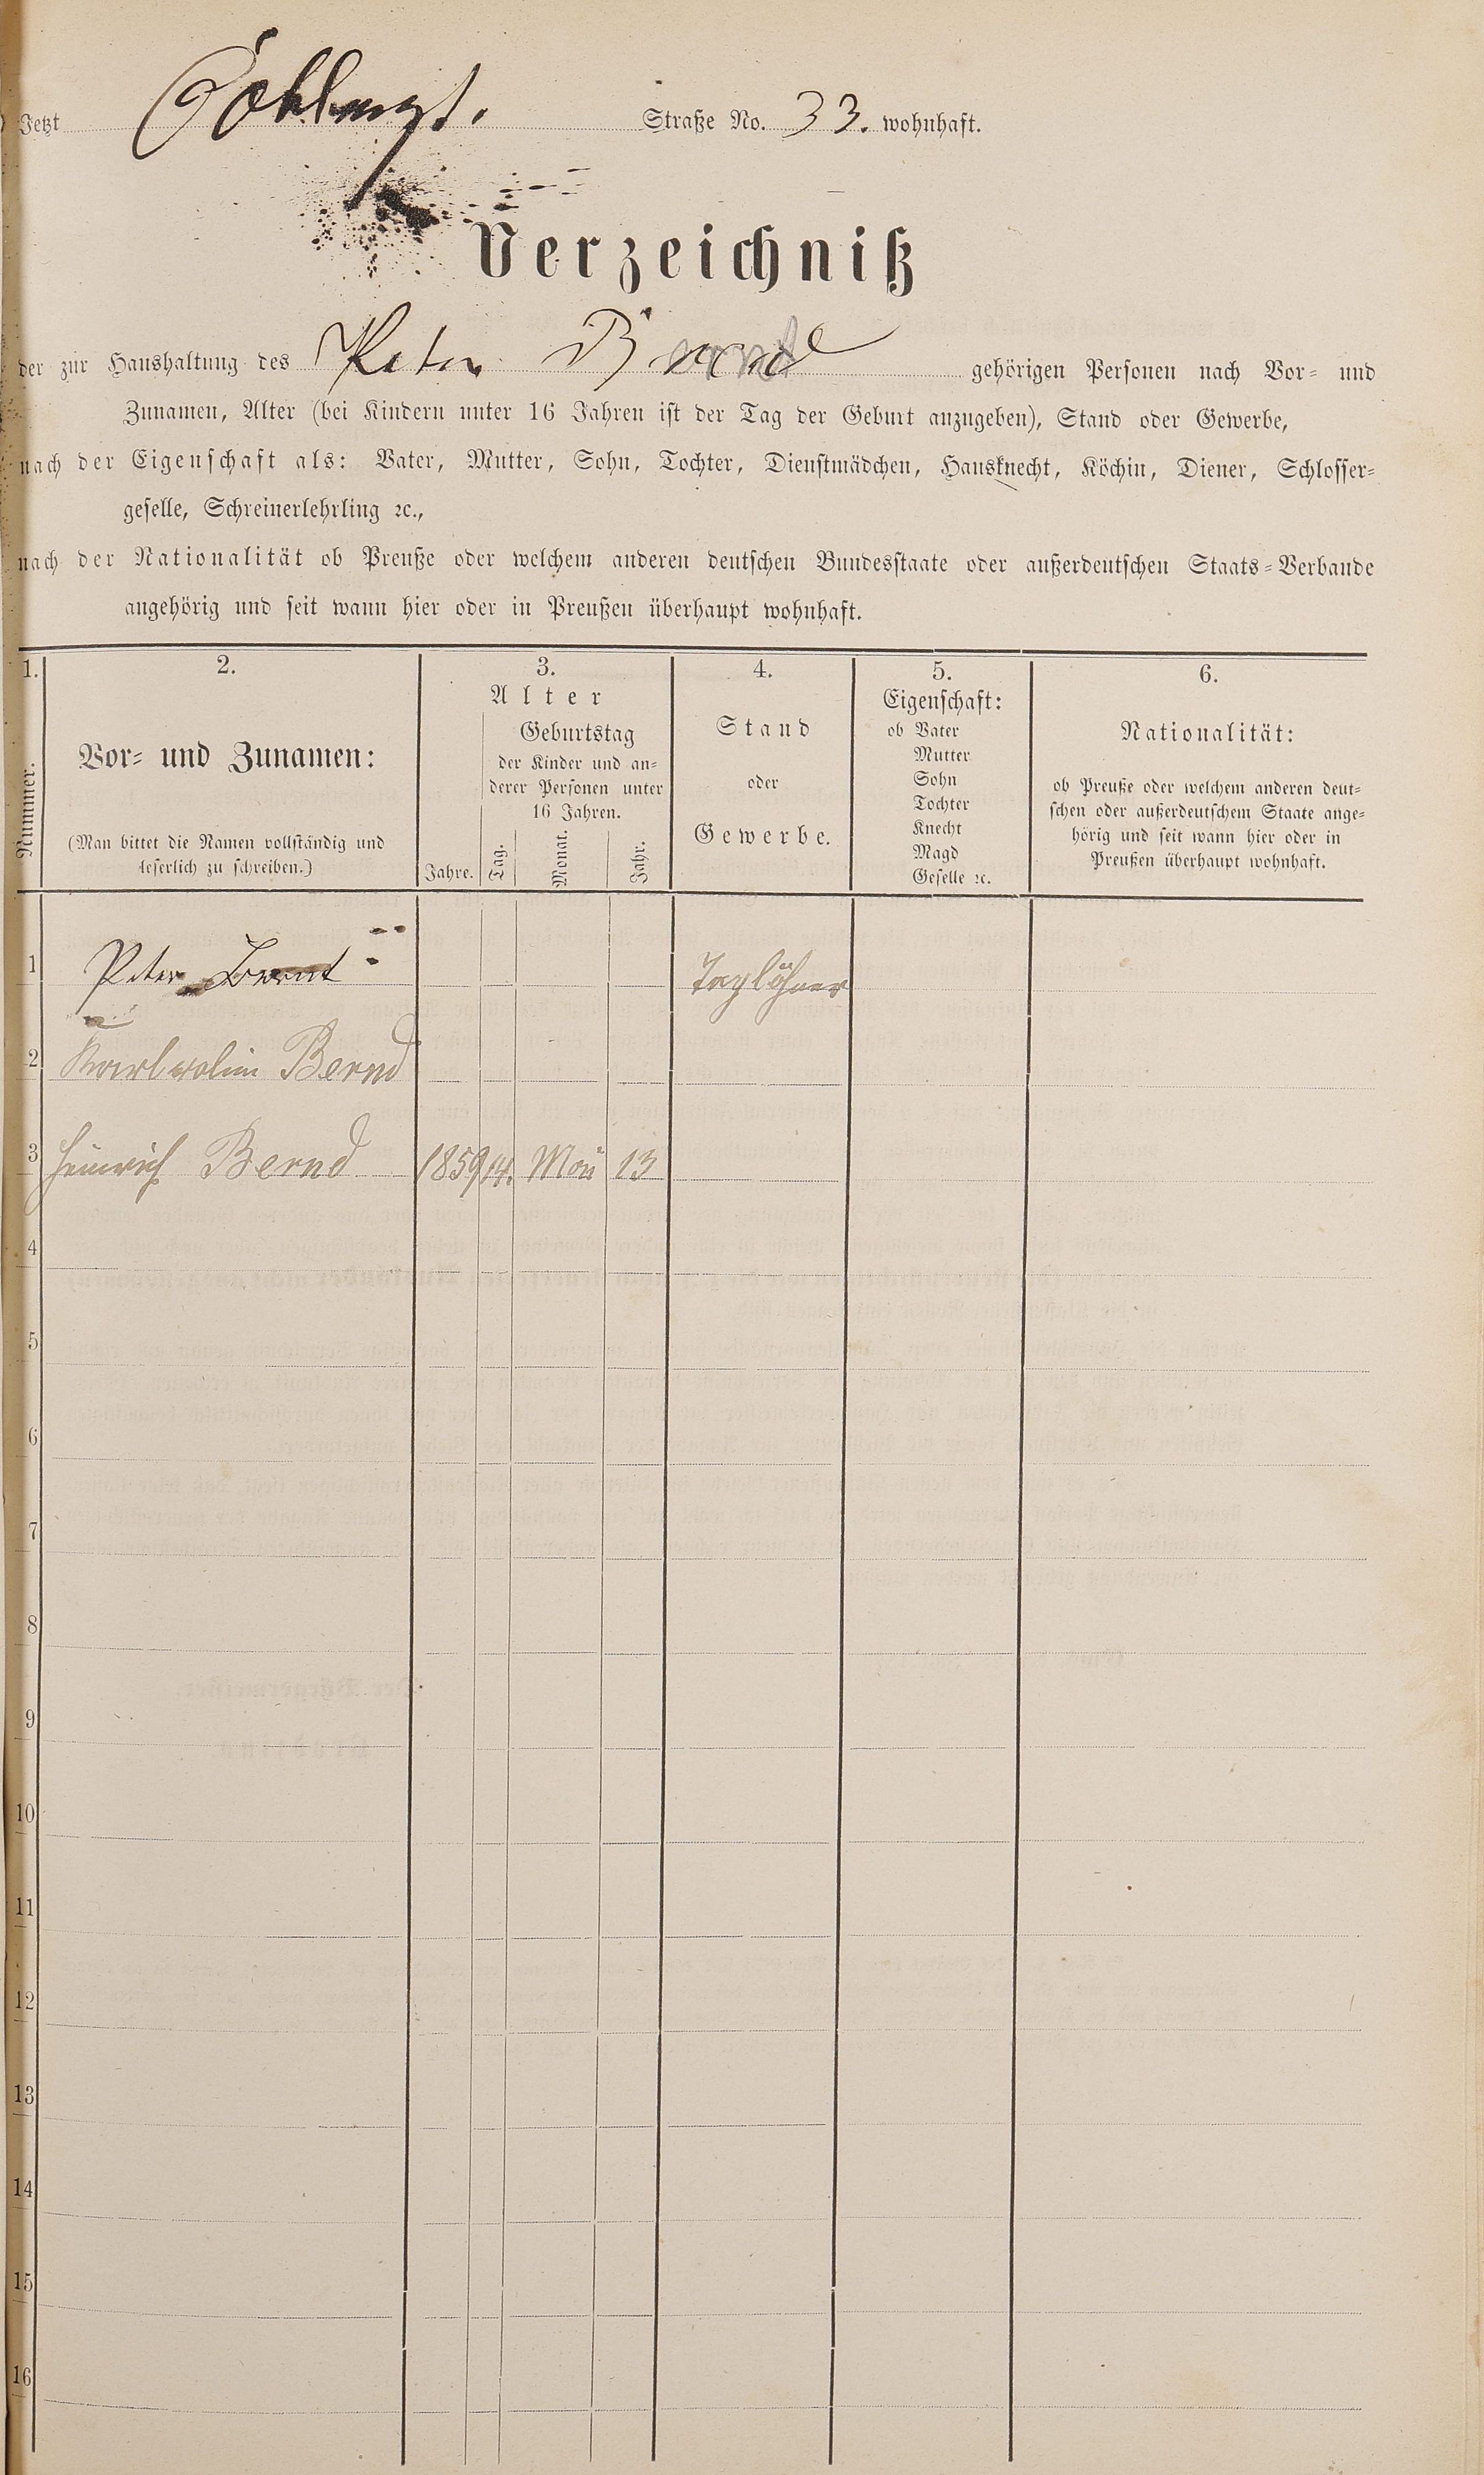 Jetzt Coblenzst. Straße No. 33. wohnhaft.
Verzeichniß
der zur Haushaltung des Peter Bernd gehörigen Personen nach Vor- und
Zunamen, Alter (bei Kindern unter 16 Jahren ist der Tag der Geburt anzugeben), Stand oder Gewerbe,
nach der Eigenschaft als: Vater, Mutter, Sohn, Tochter, Dienstmädchen, Hausknecht, Köchin, Diener, Schlosser-
geselle, Schreinerlehrling ꝛc.,
nach der Nationalität ob Preuße oder welchem anderen deutschen Bundesstaate oder außerdeutschen Staats-Verbande
angehörig und seit wann hier oder in Preußen überhaupt wohnhaft.
1.
Nummer.
2.
Vor- und Zunamen:
(Man bittet die Namen vollständig und
leserlich zu schreiben.)
3.
Alter
Jahre.
Geburtstag
der Kinder und an-
derer Personen unter
16 Jahren.
Tag.
Monat.
Jahr.
4.
Stand
oder
Gewerbe.
5.
Eigenschaft:
ob Vater
Mutter
Sohn
Tochter
Knecht
Magd
Geselle ꝛc.
6.
Nationalität:
ob Preuße oder welchem anderen deut-
schen oder außerdeutschem Staate ange-
hörig und seit wann hier oder in
Preußen überhaupt wohnhaft.
1 Peter Bernd Taglöhner
2 Bernd
3 Heinrich Bernd 1859 14. Mai 13
4
5
6
7
8
9
10
11
12
13
14
15
16